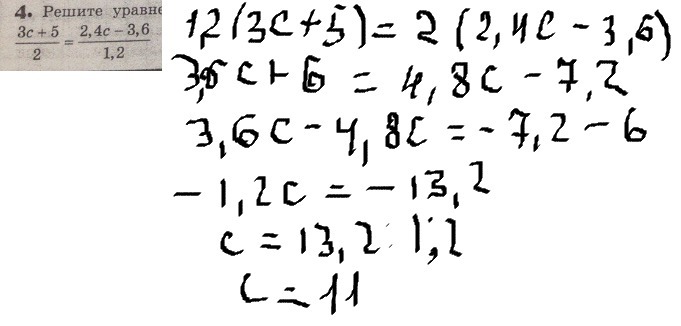 4. Решите уравне
(3c + 5)/2 = (2,4c − 3,6)/1,2
1,2(3c+5) = 2(2,4c − 3,6)
3,6c + 6 = 4,8c − 7,2
3,6c − 4,8c = −7,2 − 6
−1,2c = −13,2
c = 13,2 : 1,2
c = 11